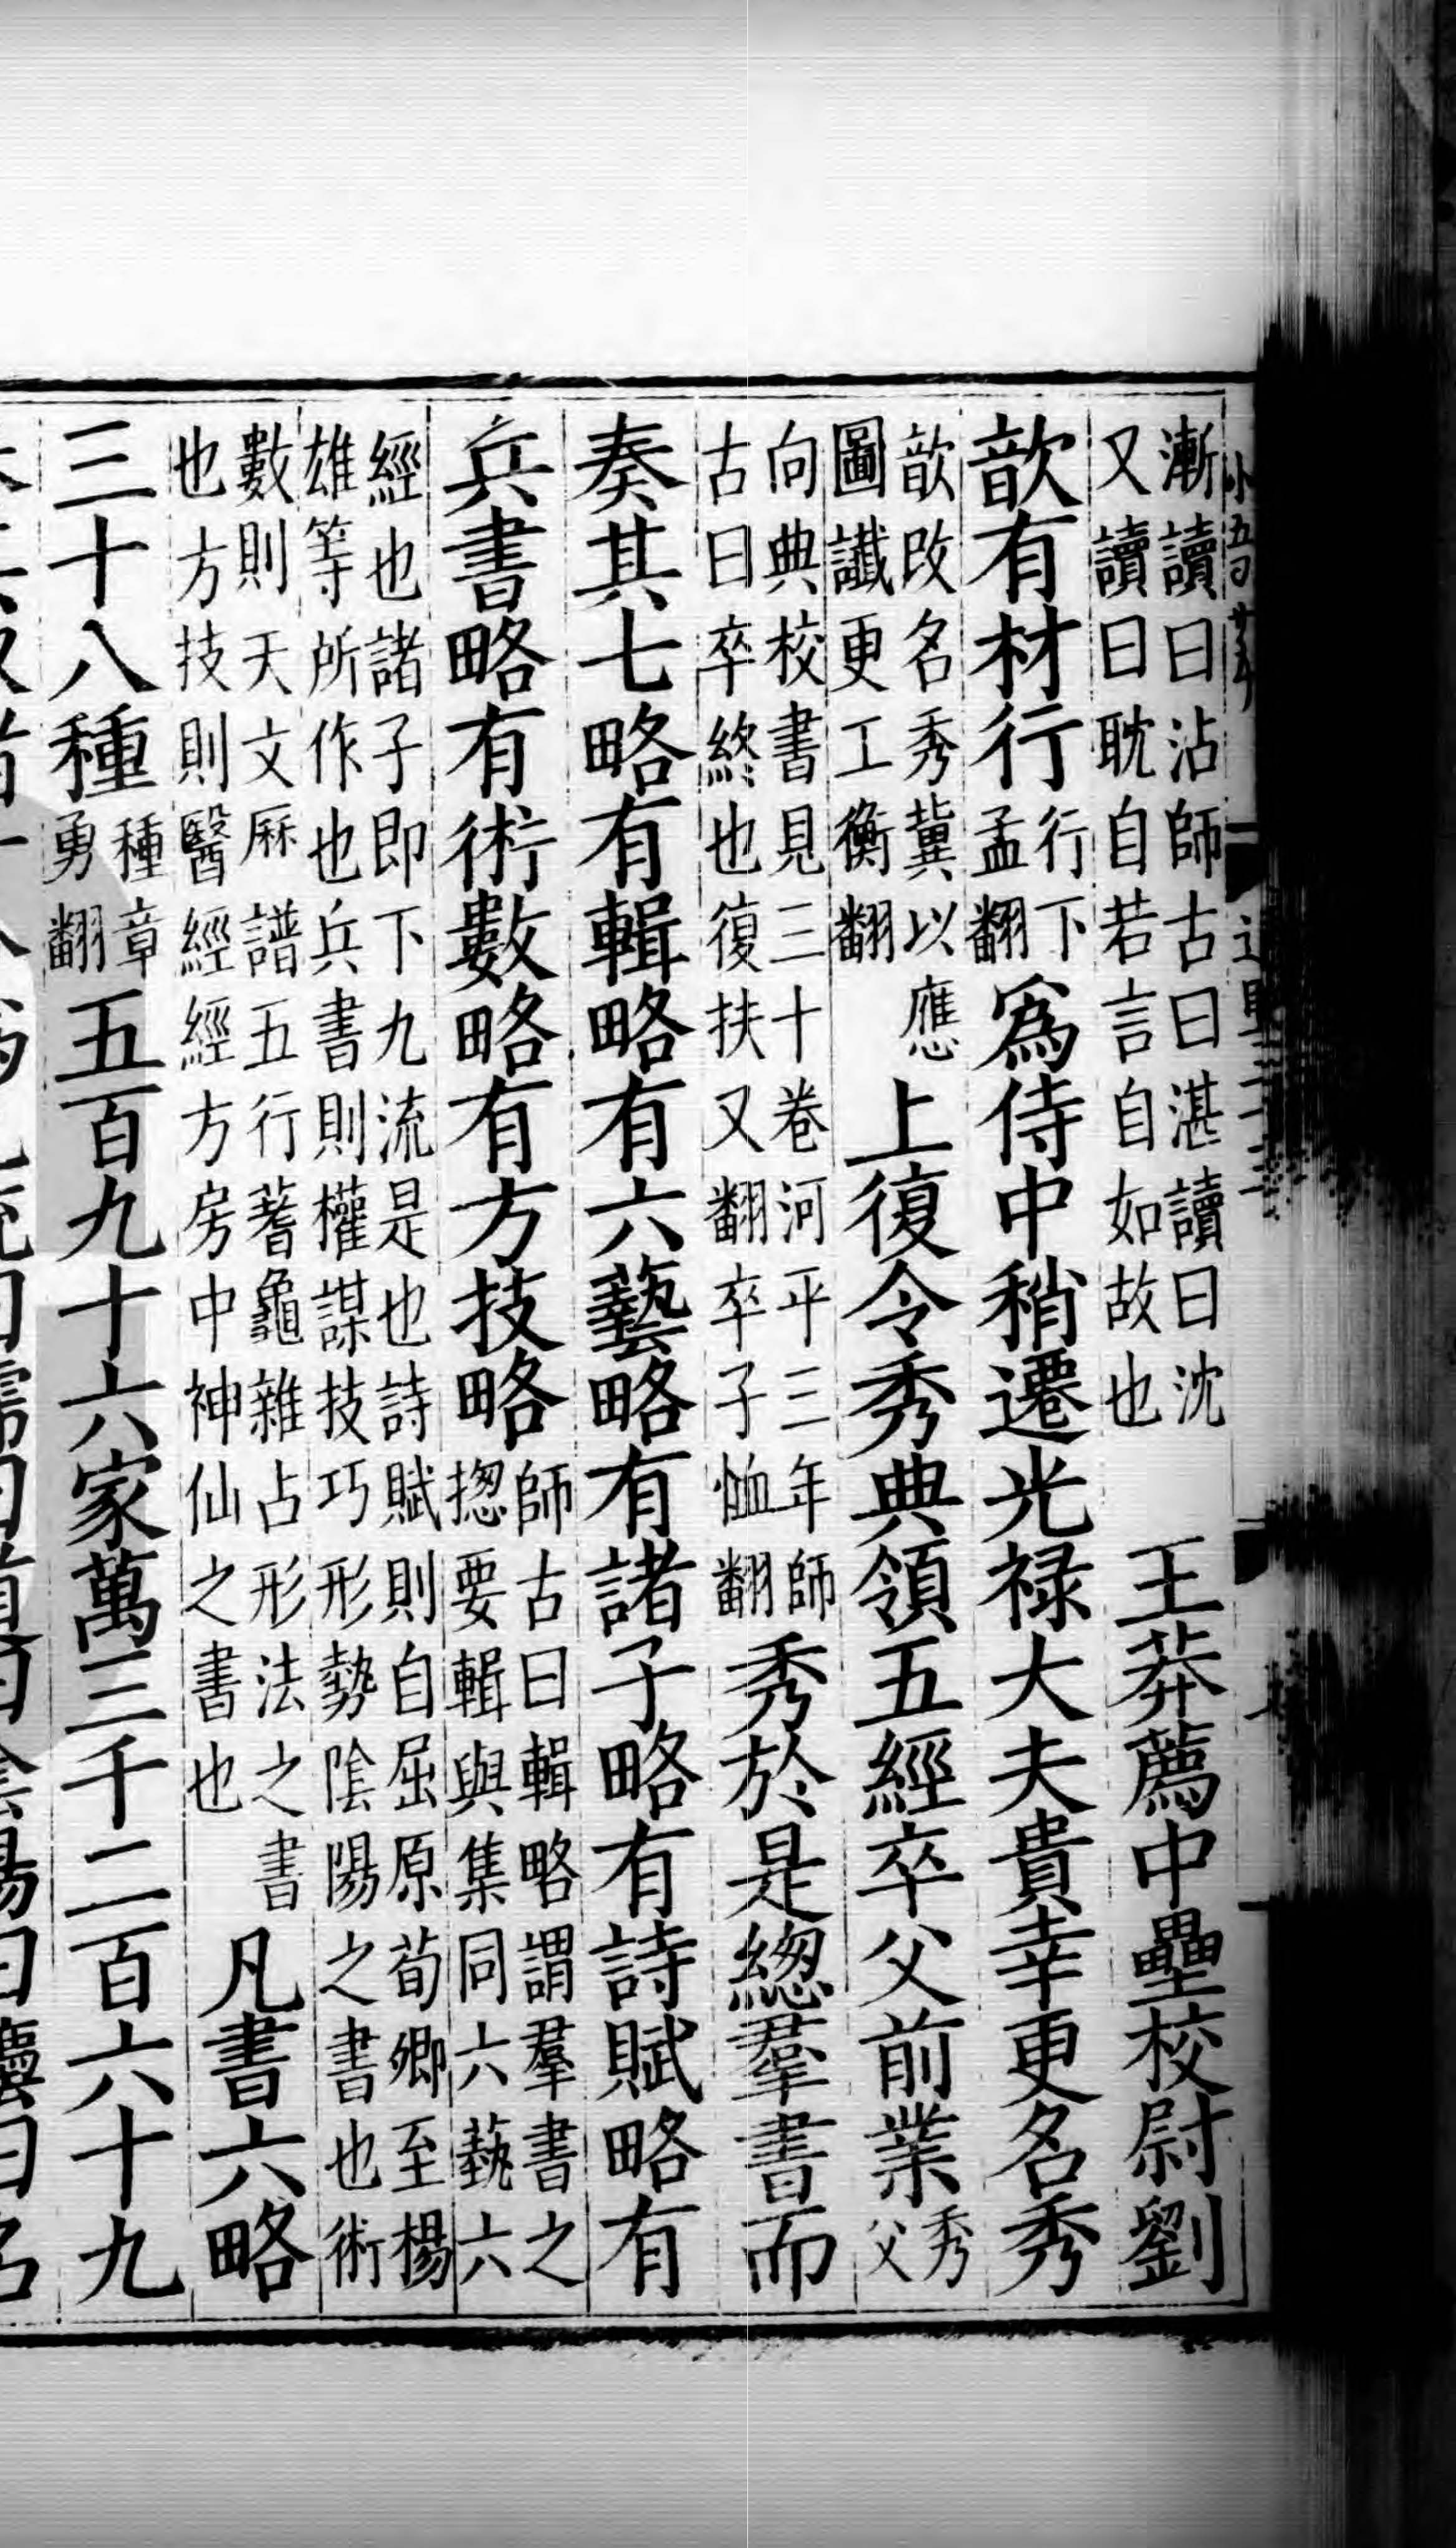 漸讀曰沾師古曰湛讀曰沈又讀曰耽自若言自如故也王莽薦中壘校尉劉
歆有材行行下孟翻爲侍中稍遷光禄大夫貴幸更名秀
歆改名秀冀以應圖讖更工衡翻上復令秀典領五經卒父前業秀父
向典校書見三十卷河平三年師古曰卒終也復扶又翻卒子恤翻秀於是緫羣書而
奏其七略有輯略有六藝略有諸子略有詩賦略有
兵書略有術數略有方技略師古曰輯略謂羣書之揔要輯與集同六藝六
經也諸子即下九流是也詩賦則自屈原荀卿至楊雄等所作也兵書則權謀技巧形勢陰陽之書也術
數則天文厤譜五行蓍龜雜占形法之書也方技則醫經經方房中神仙之書也凡書六略
三十八種種章勇翻五百九十六家萬三千二百六十九